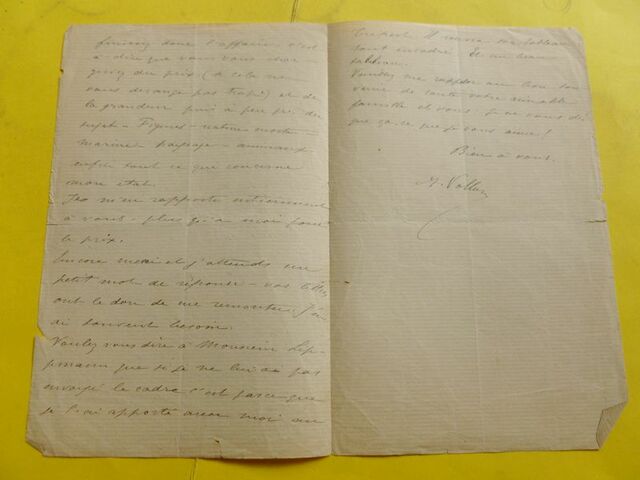 finissez donc l'affaire c'est
à dire que vous vous char-
giez du prix (si cela ne
vous dérange pas trop) et de
la grandeur puis à peu près du
sujet - Figures - nature morte -
marine paysage - animaux
enfin tout ce que concerne
mon état.
Je m'en rapporte entièrement
à vous - plus qu'à moi pour
le prix.
Encore merci et j'attends un
petit mot de réponse - vos lettres
ont le don de me remonter. J'en
ai souvent besoin.
Voulez vous dire à Monsieur Lip-
pmann que si je ne lui ai pas
envoyé le cadre c'est parce que
je l'ai apporté avec moi au
Tréport. Il recevra son tableau
tout encadré. Et un beau
tableau.
Veuillez me rappeler au bon sou-
venir de toute votre aimable
famille et vous je ne vous dis
que ça - ce que je vous aime!
Bien à vous.
A. Vollon